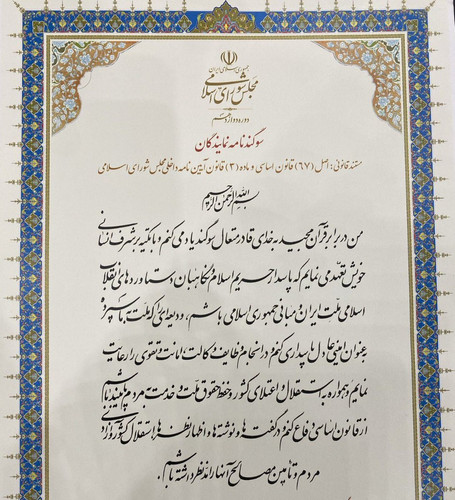 جمهوری اسلامی ایران
مجلس شورای اسلامی
دوره دوازدهم
سوگندنامه نمایندگان
مستند قانونی: اصل (۶۷) قانون اساسی و ماده (۳) قانون آیین نامه داخلی مجلس شورای اسلامی
بسم الله الرحمن الرحیم
من در برابر قرآن مجید به خدای قادر متعال سوگند یاد می کنم و با تکیه بر شرف انسانی
خویش تعهد می نمایم که پاسدار حریم اسلام و نگاهبان دستاوردهای انقلاب
اسلامی ملت ایران و مبانی جمهوری اسلامی باشم، ودیعه ای را که ملت به ما سپرده
به عنوان امینی عادل پاسداری کنم و در انجام وظایف وکالت، امانت و تقوی را رعایت
نمایم و همواره به استقلال و اعتلای کشور و حفظ حقوق ملت و خدمت به مردم پایبند باشم
از قانون اساسی دفاع کنم و در گفته ها و نوشته ها و اظهار نظرها، استقلال کشور و آزادی
مردم و تأمین مصالح آنها را مد نظر داشته باشم.